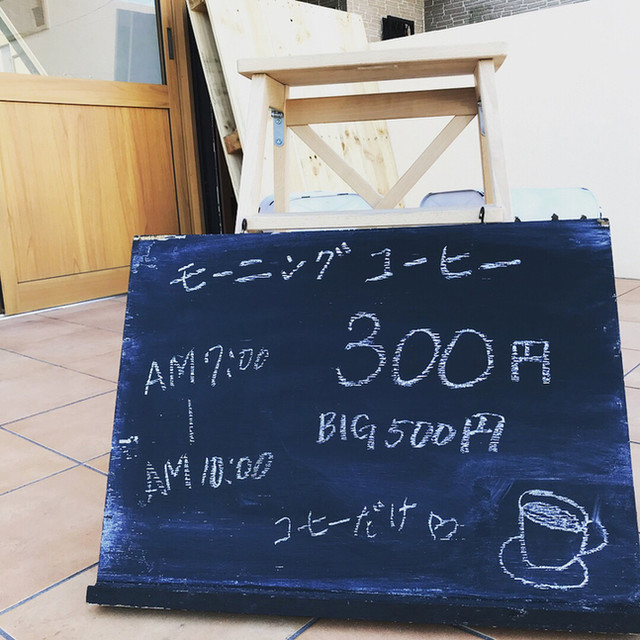 モーニング コーヒー
AM 7:00
300円
BIG 500円
AM 10:00
コーヒーだけ ♡